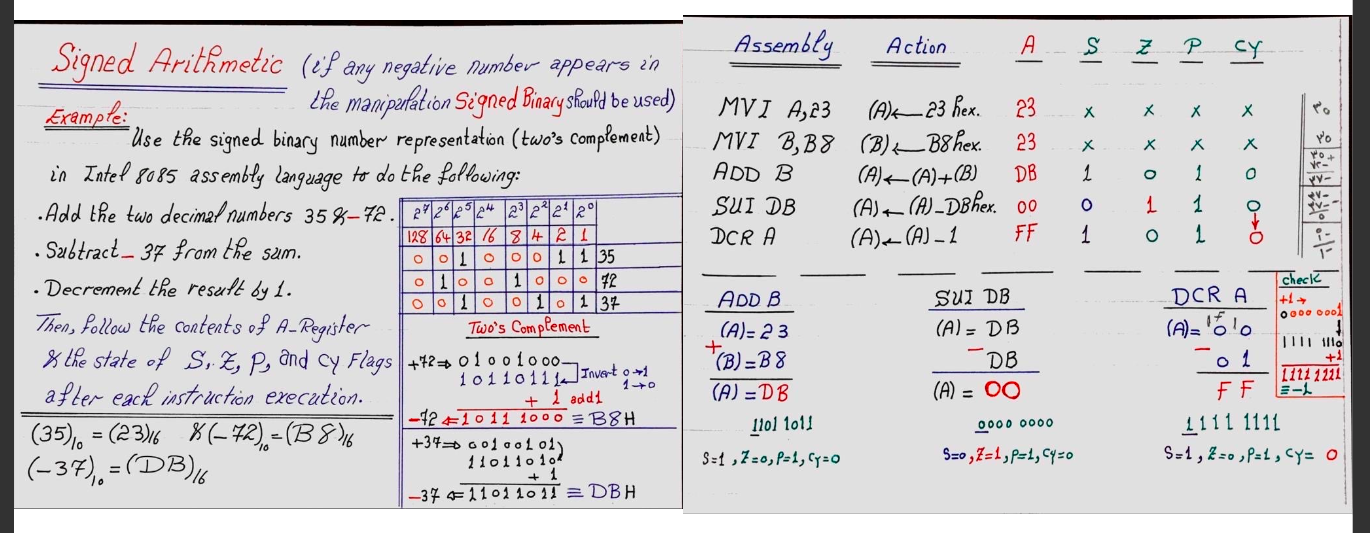 Signed Arithmetic (if any negative number appears in
the manipulation Signed Binary should be used)
Example:
Use the signed binary number representation (two's complement)
in Intel 8085 assembly language to do the following:
• Add the two decimal numbers 35 & -72.
• Subtract -37 from the sum.
• Decrement the result by 1.
Then, follow the contents of A-Register
& the state of S, Z, P, and Cy Flags
after each instruction execution.
(35)₁₀ = (23)₁₆ & (-72)₁₀ = (B8)₁₆
(-37)₁₀ = (DB)₁₆
2⁷ 2⁶ 2⁵ 2⁴ 2³ 2² 2¹ 2⁰
128 64 32 16 8 4 2 1
0 0 1 0 0 0 1 1 35
0 1 0 0 1 0 0 0 72
0 0 1 0 0 1 0 1 37
Two's Complement
+72 ⇒ 01001000
10110111 Invert 0→1
1→0
+ 1 add 1
-72 ⇐ 1011 1000 ≡ B8H
+37 ⇒ 00100101
11011010
+ 1
-37 ⇐ 11011011 ≡ DBH
Assembly Action A S Z P CY
MVI A,23 (A)←23 hex. 23 x x x x
MVI B,B8 (B)←B8 hex. 23 x x x x
ADD B (A)←(A)+(B) DB 1 0 1 0
SUI DB (A)←(A)-DB hex. 00 0 1 1 0
DCR A (A)←(A)-1 FF 1 0 1 0
ADD B
(A)=23
+
(B)=B8
(A)=DB
1101 1011
S=1, Z=0, P=1, CY=0
SUI DB
(A)= DB
- DB
(A)= 00
0000 0000
S=0, Z=1, P=1, CY=0
DCR A
(A)= 0 0
- 0 1
F F
1111 1111
S=1, Z=0, P=1, CY= 0
check
+1 →
0000 0001
1111 1110
+1
1111 1111
≡ -1